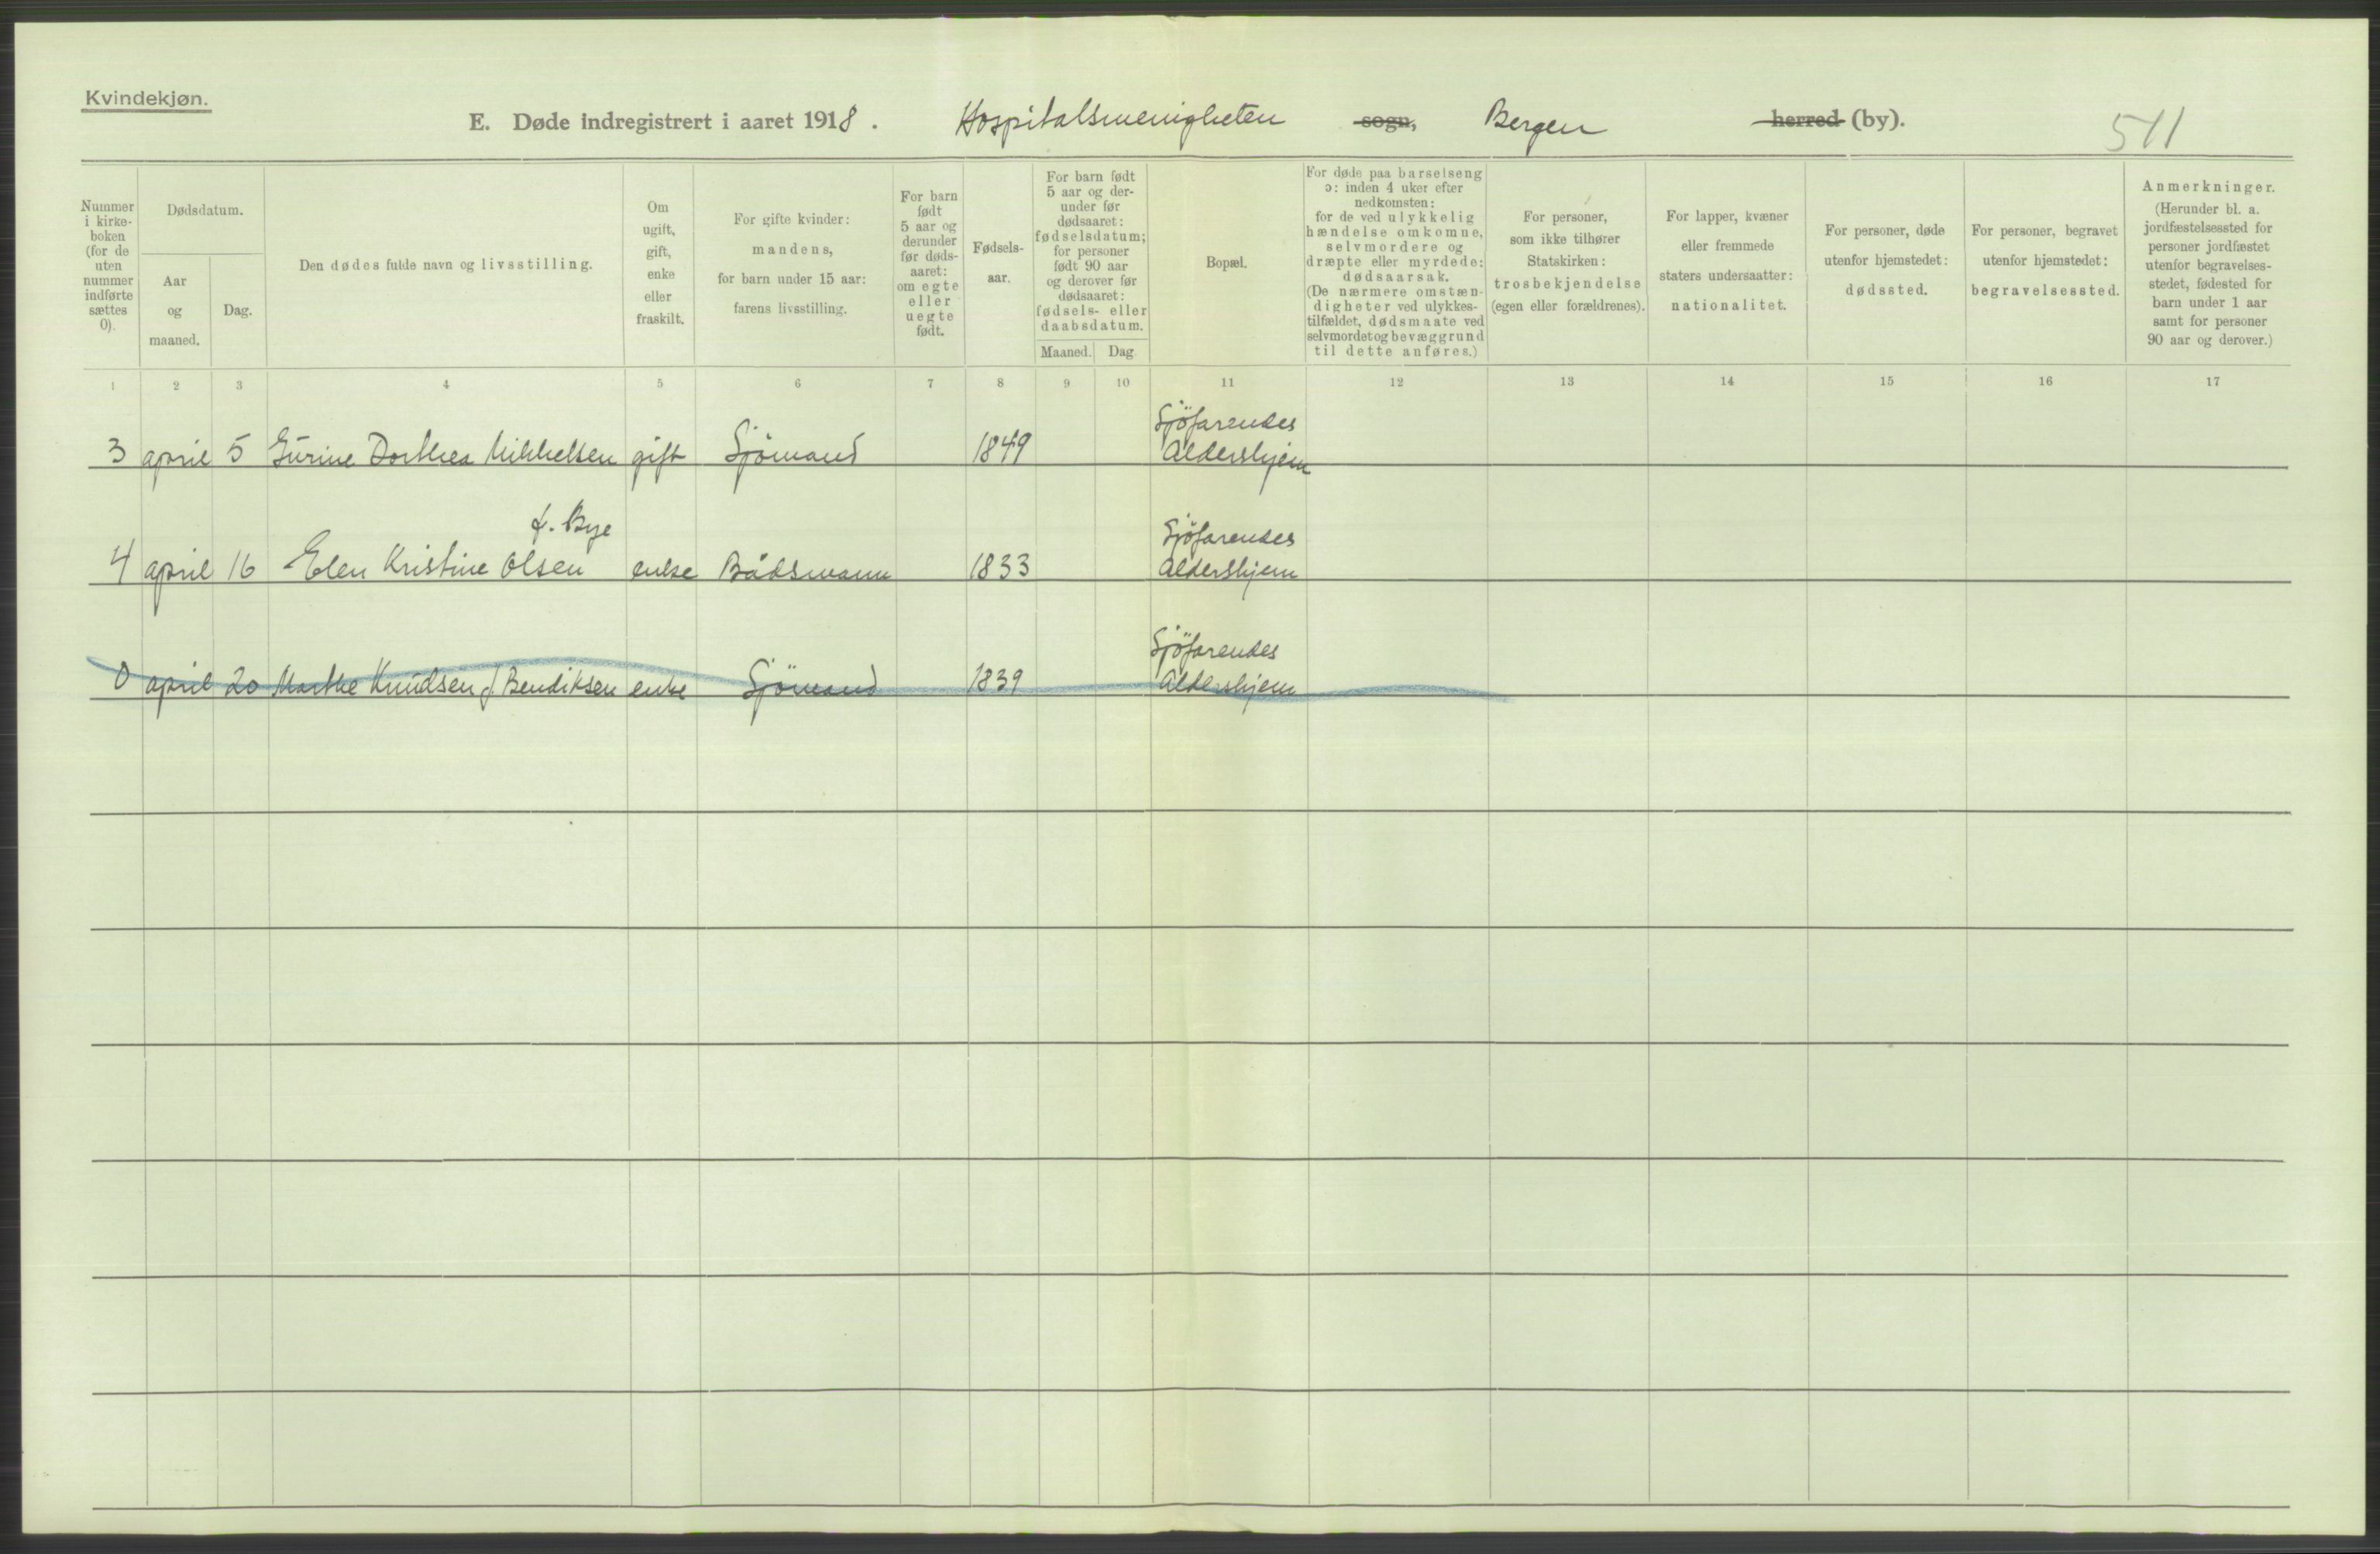 Kvindekjøn.
E. Døde indregistrert i aaret 1918. Hospitalsmenigheten sogn, Bergen herred (by). 511
Nummer i kirkeboken (for de uten nummer indførte sættes 0).
Dødsdatum.
Aar og maaned.
Dag.
Den dødes fulde navn og livsstilling.
Om ugift, gift, enke eller fraskilt.
For gifte kvinder: mandens, for barn under 15 aar: farens livsstilling.
For barn født 5 aar og derunder før dødsaaret: om egte eller uegte født.
Fødselsaar.
For barn født 5 aar og derunder før dødsaaret: fødselsdatum; for personer født 90 aar og derover før dødsaaret: fødsels- eller daabsdatum.
Maaned. Dag
Bopæl.
For døde paa barselseng ɔ: inden 4 uker efter nedkomsten: for de ved ulykkelig hændelse omkomne, selvmordere og dræpte eller myrdede: dødsaarsak. (De nærmere omstændigheter ved ulykkestilfældet, dødsmaate ved selvmordet og bevæggrund til dette anføres.)
For personer, som ikke tilhører Statskirken: trosbekjendelse (egen eller forældrenes).
For lapper, kvæner eller fremmede staters undersaatter: nationalitet.
For personer, døde utenfor hjemstedet: dødssted.
For personer, begravet utenfor hjemstedet: begravelsessted.
Anmerkninger. (Herunder bl. a. jordfæstelsessted for personer jordfæstet utenfor begravelsesstedet, fødested for barn under 1 aar samt for personer 90 aar og derover.)
1 2 3 4 5 6 7 8 9 10 11 12 13 14 15 16 17
Sjöfarendes
3 april 5 Gurine Dorthea Mikkelsen gift Sjömand 1849 Aldershjem
f. Bye Sjöfarendes
4 april 16 Elen Kristine Olsen enke Bådsmann 1833 Aldershjem
Sjöfarendes
0 april 20 Marthe Knudsen f Bendiksen enke Sjömand 1839 Aldershjem